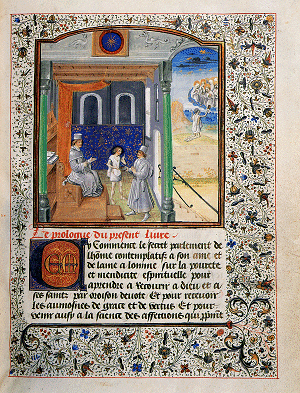 Le prologue du present liure
Cy Commence le secret parlement de
lhomme contemplatif a son ame et
de lame a lomme sur la pourete
et mendicite espirituelle pour
aprendre a recourir a dieu et a
ses sains par oroison deuote et pour receuoir
les aumosnes de grace et de vertus Et pour
venir aussi a la science des affections qui